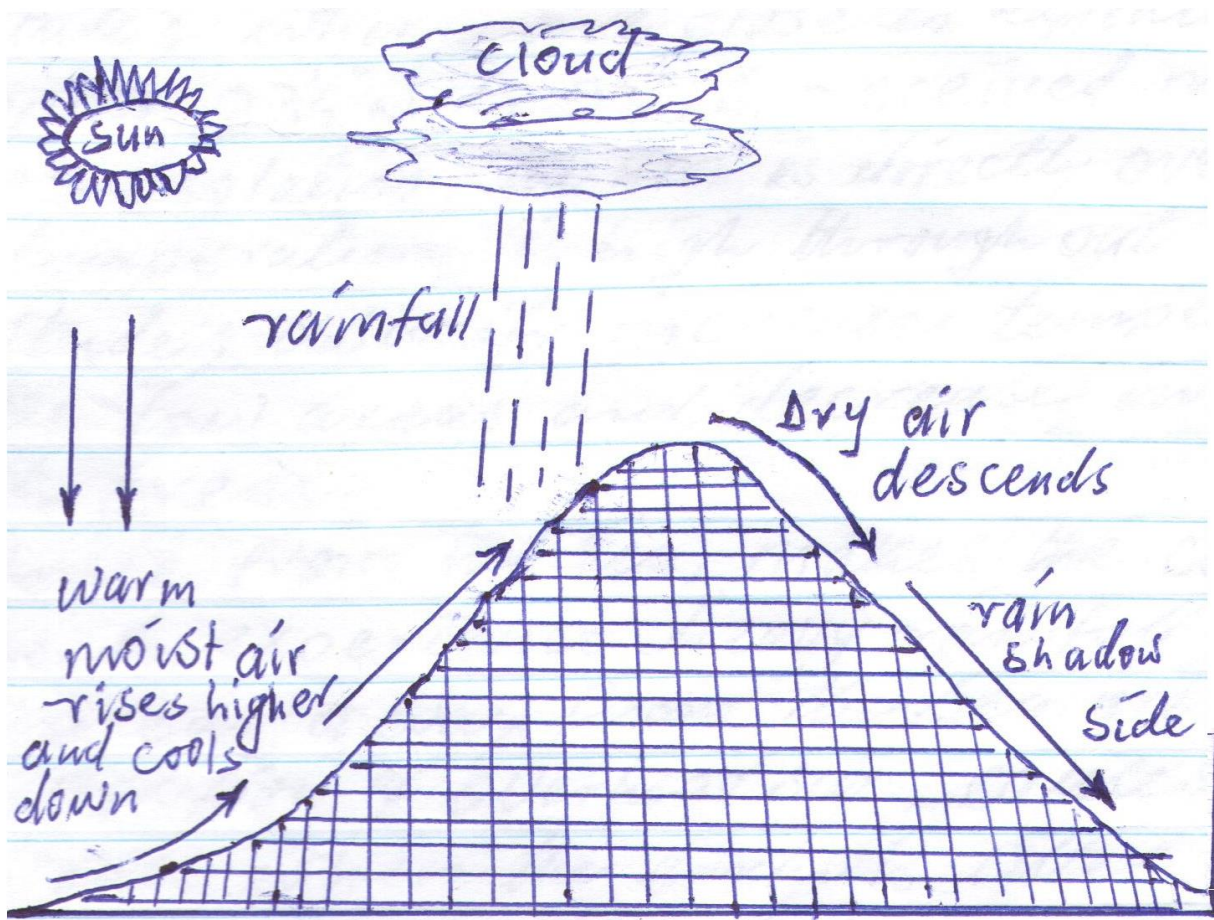 cloud
sun
rainfall
Dry air
descends
warm
moist air
rises higher
and cools
down
rain
shadow
side